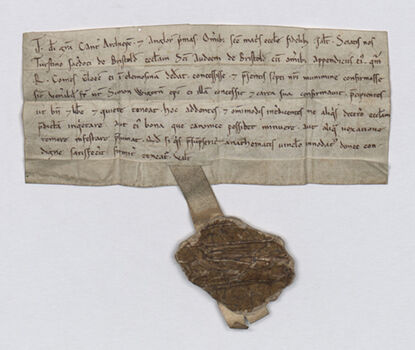 T. di gra Cant Archiepc. & Angloꝝ pmas. Omib; sce matis eccle fidelib; salt. Sciatis nos
Turstino sacdoti de Bristold ecclam Sci Audoeni de Bristold cu omib; appendiciis ei. qm
R. Comes Gloec ei i elemosina dedat concessisse & psentis scpti nri munimine confirmasse
sic venabilis fr nr Simon Wigorn epc ei illa concessit & carta sua confirmavit. pcipientes
ut bn & libe & quiete teneat. hoc addentes & omimodis inhibentes ne aliqs decero ecclam
pdicta inqietare aut ei bona que canonice possidet minuere aut aliq vexatione
temere infestare psumat. qd si qs psupserit anathematis vinclo innodat donec con
digne satisfecerit sumit teneat. Valt